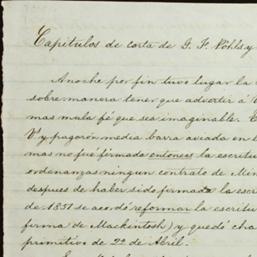 Capitulos de carta de G. F. Vohls y
Anoche por fin tuvo lugar la
sobre manera tener que advertir á V
mas mula fé que sea imaginable. E
Vs y pagaron media barra aviada en l
mas no fué firmado entonces la escritu
ordenanzas ningun contrato de Min
despues de haber sido firmada la escr
de 1851 se acordó reformar la escritur
firma de Mackintosh) y quedó cha
primitivo de 22 de Abril.